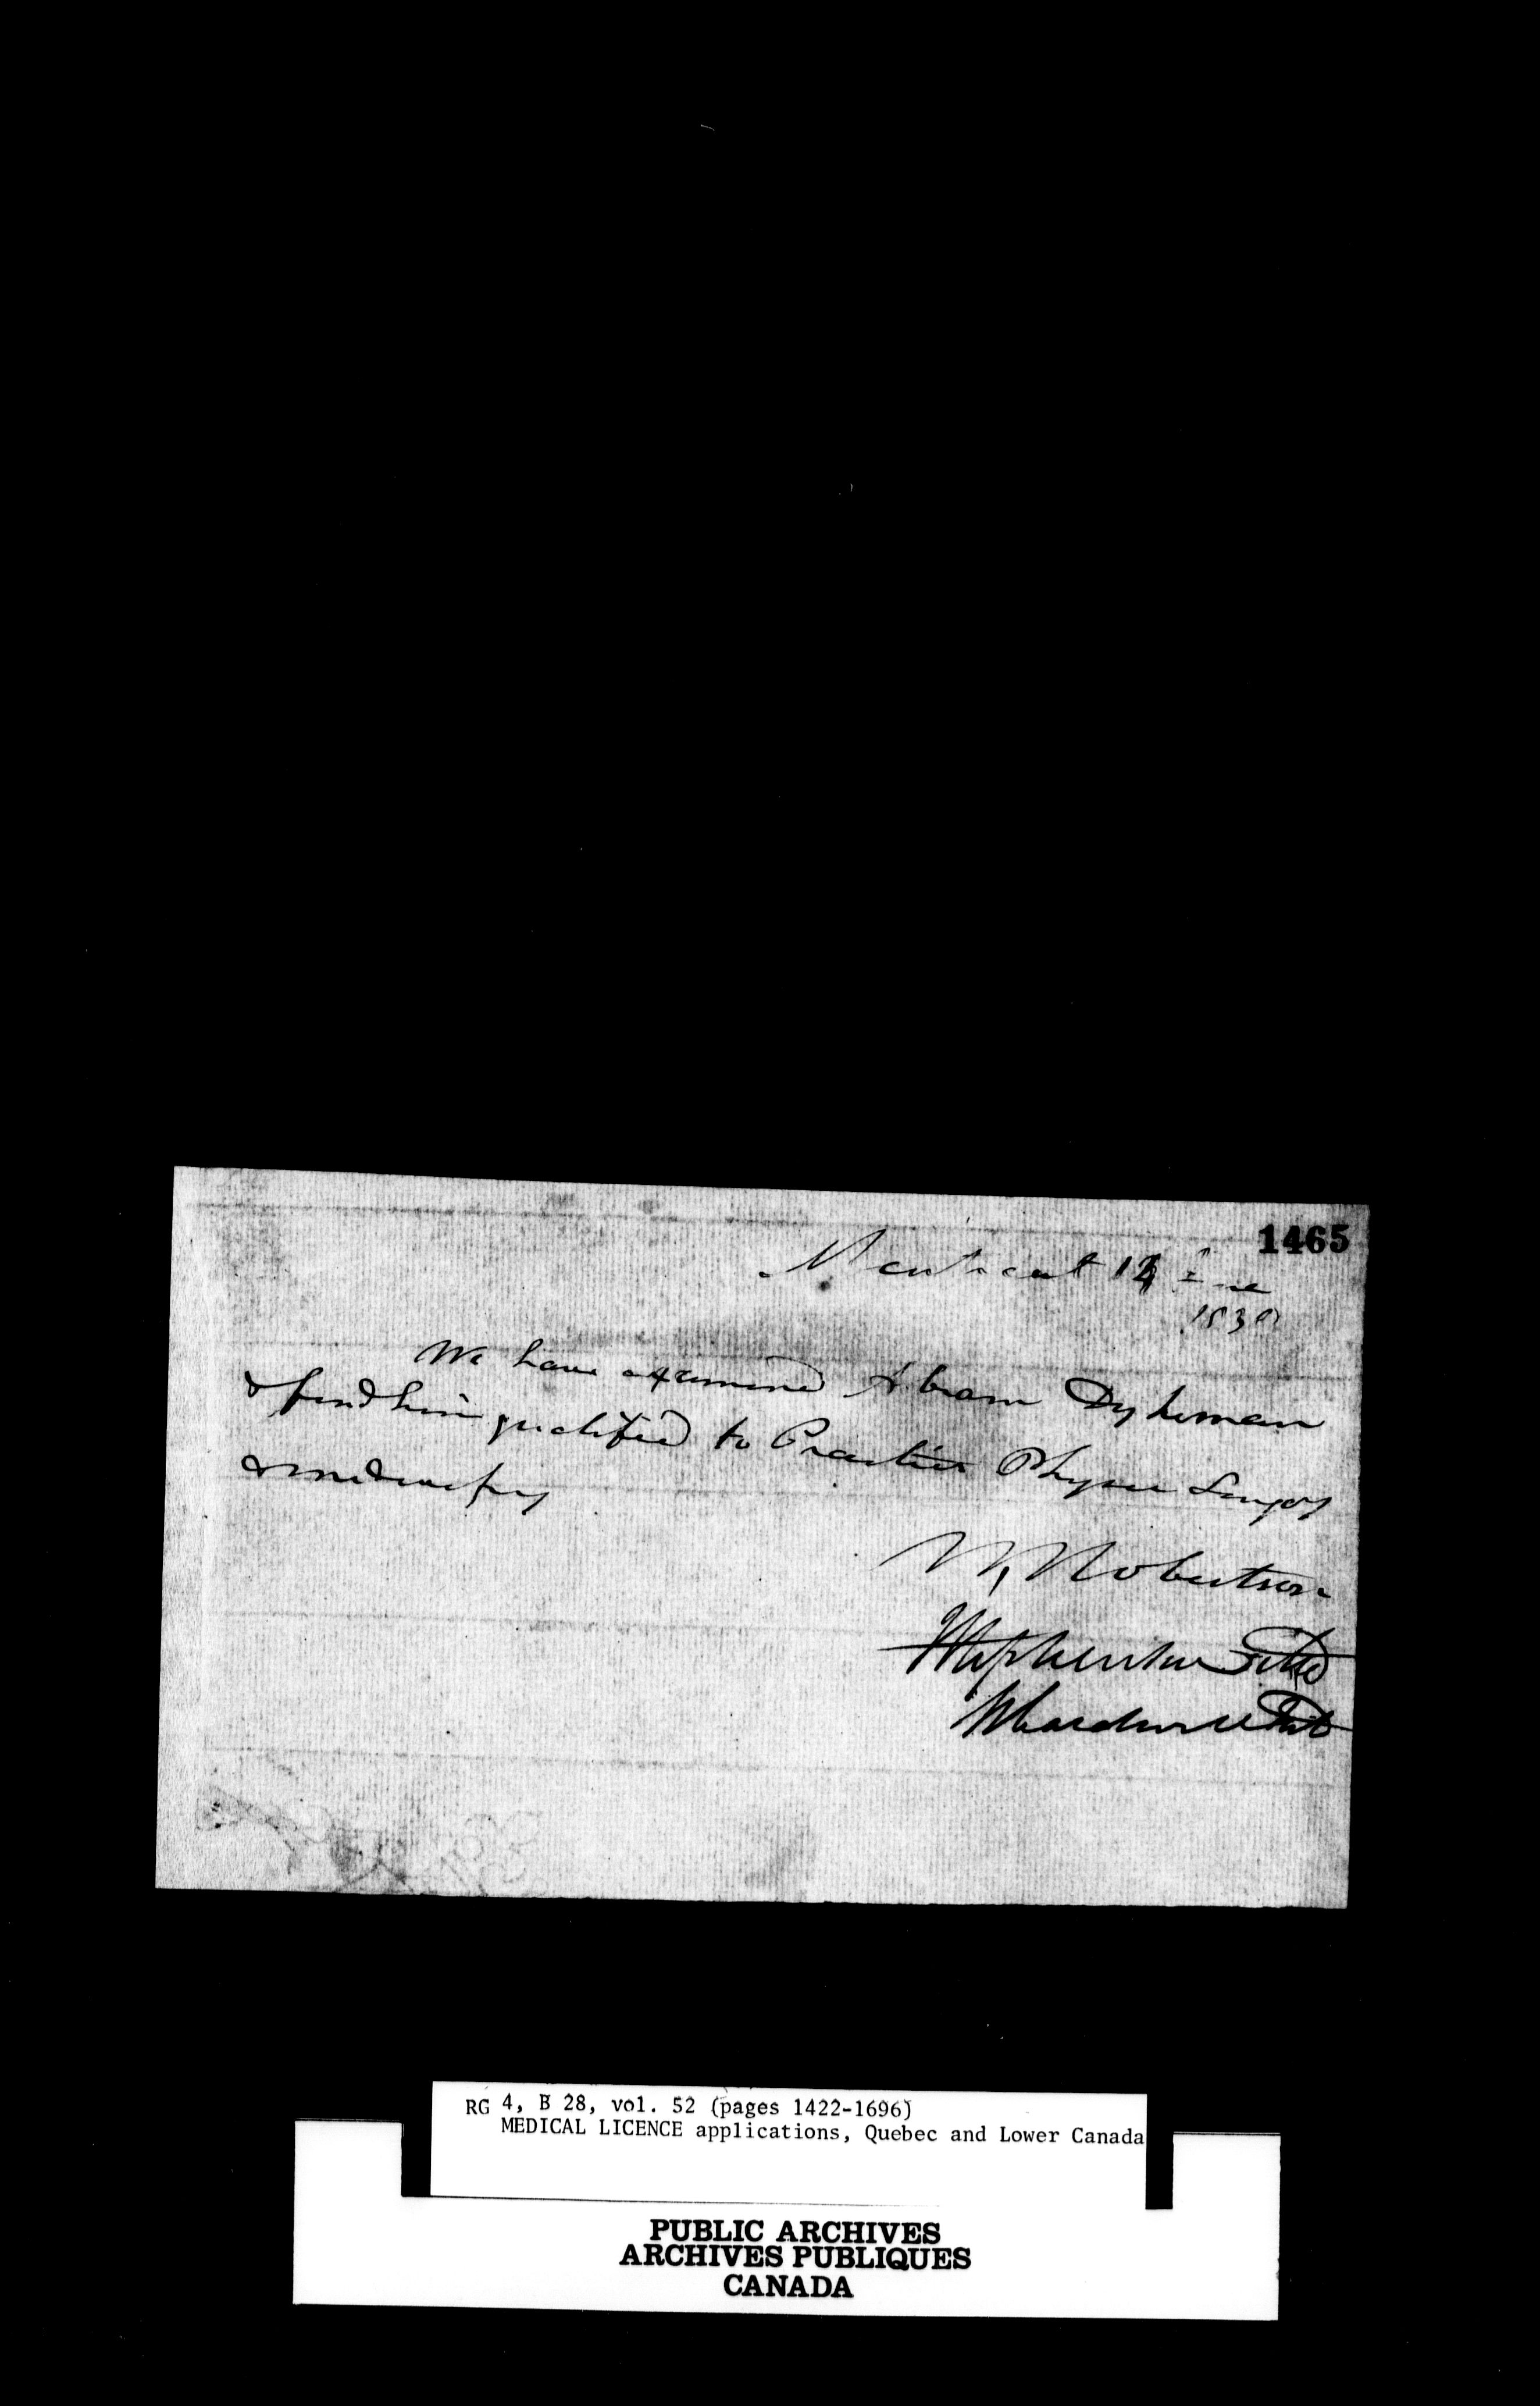 1465
Montreal 14 June
1830
We have examined Abram Dykeman
& find him qualified to Practice Physic Surgery
& midwifery
W, Robertson
W Caldwell
RG 4, B 28, vol. 52 (pages 1422-1696)
MEDICAL LICENCE applications, Quebec and Lower Canada
PUBLIC ARCHIVES
ARCHIVES PUBLIQUES
CANADA